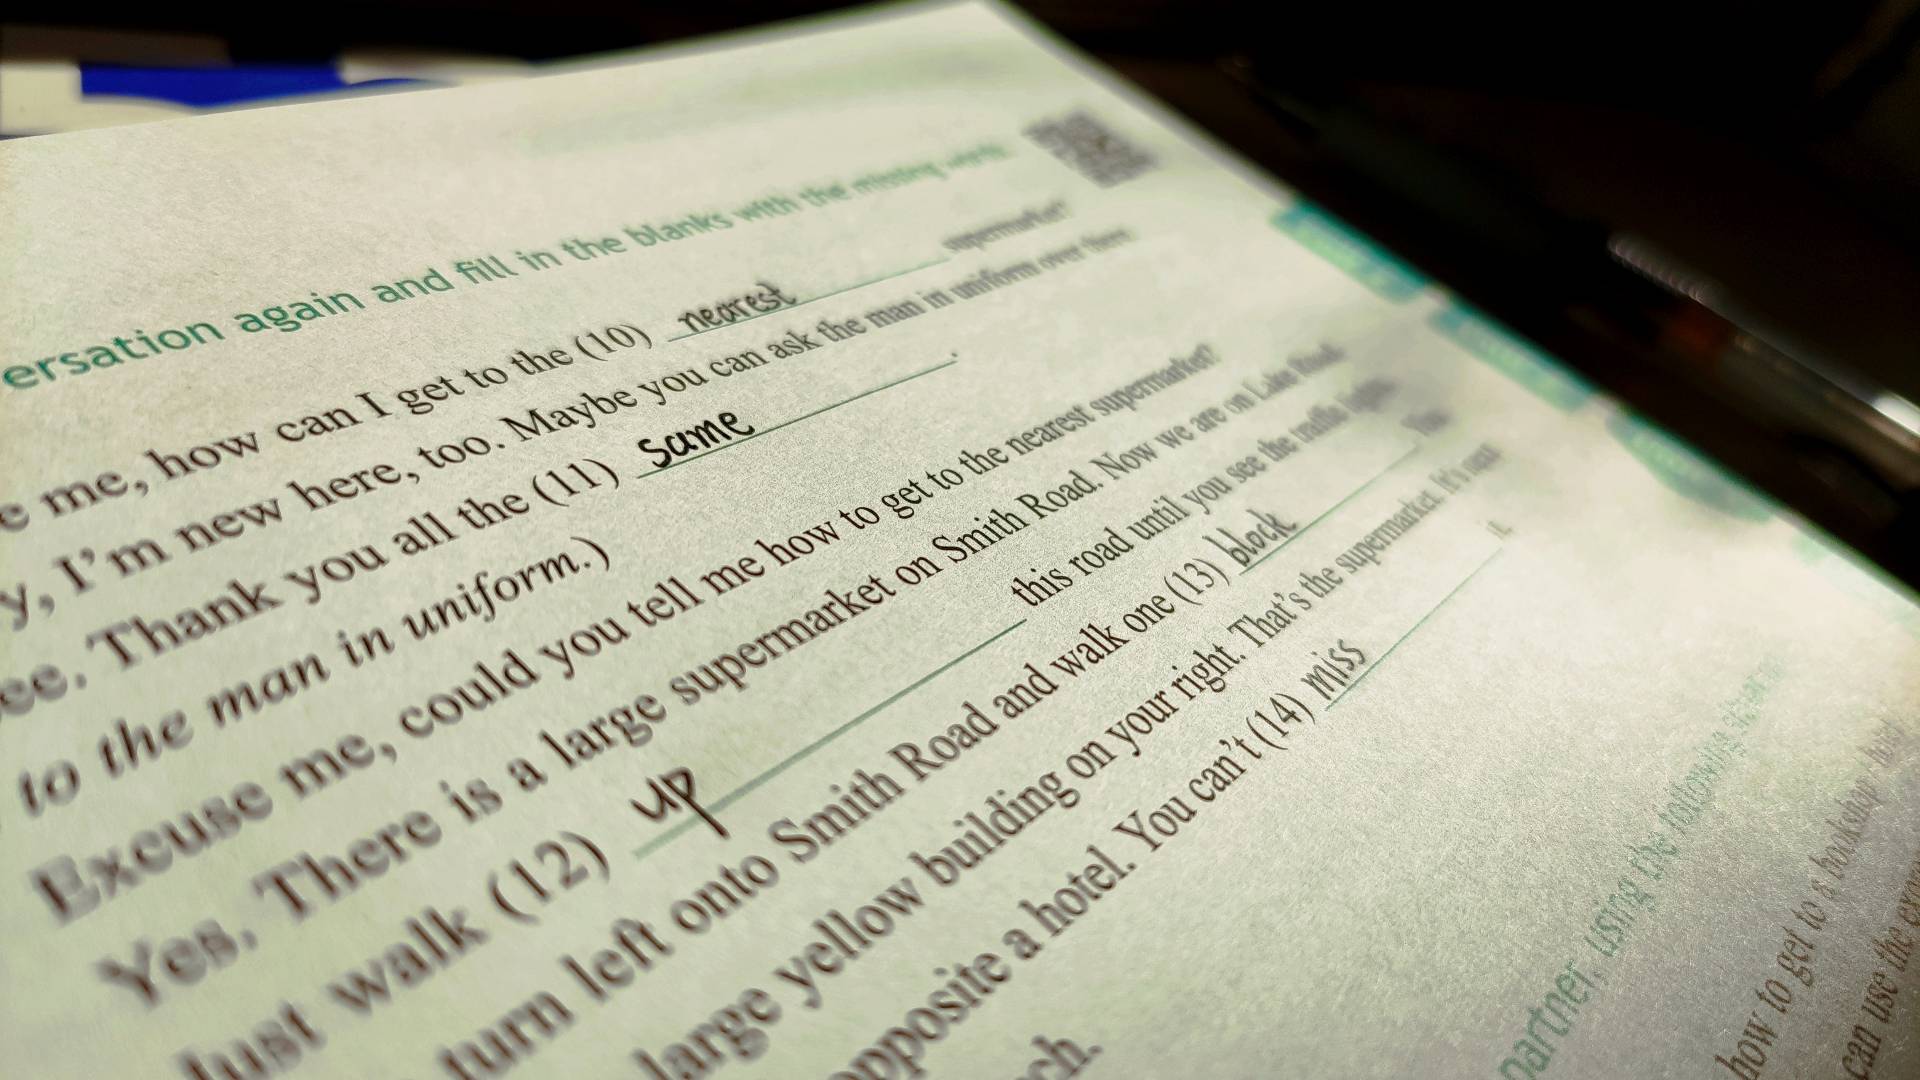 ersation again and fill in the blanks with the missing words.
e me, how can I get to the (10) nearest supermarket?
y, I'm new here, too. Maybe you can ask the man in uniform over there
ee. Thank you all the (11) same.
to the man in uniform.)
Excuse me, could you tell me how to get to the nearest supermarket?
Yes. There is a large supermarket on Smith Road. Now we are on Lake Road.
Just walk (12) up this road until you see the traffic lights.
turn left onto Smith Road and walk one (13) block
large yellow building on your right. That's the supermarket. It's
opposite a hotel. You can't (14) miss it.
ch.
partner, using the following
how to get to a bookshop
can use the